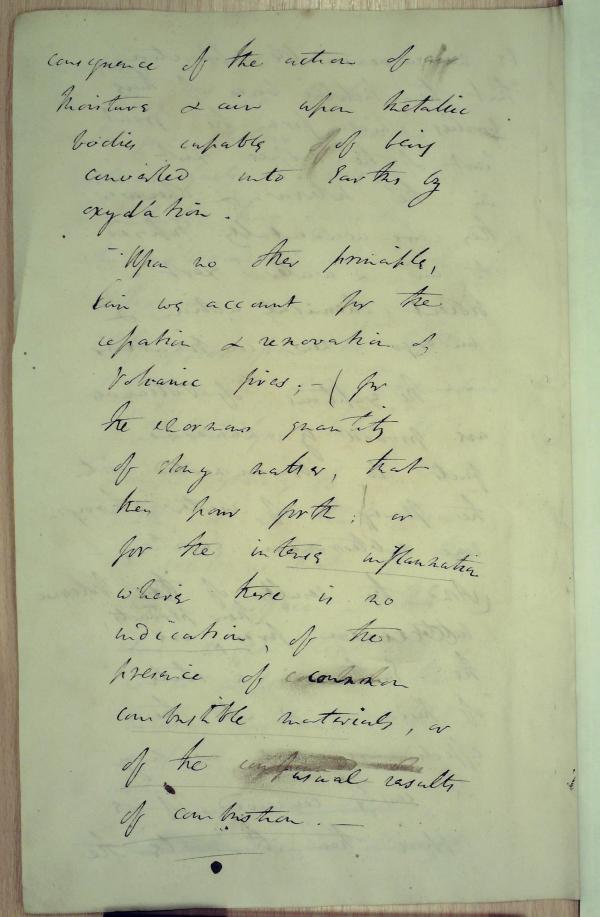 consequence of the action of air
moisture & air upon metallic
bodies capable of being
converted into Earths by
oxydation.
- Upon no other principle,
Can we account for the
cessation & renovation of
Volcanic fires; - ( for
the enormous quantity
of stony matter, that
they pour forth; or
for the intense inflammation
where there is no
indication, of the
presence of common
combustible materials, or
of the usual results
of combustion. —